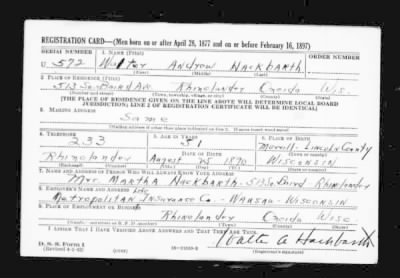 REGISTRATION CARD—(Men born on or after April 28, 1877 and on or before February 16, 1897)
SERIAL NUMBER 1. NAME (Print) ORDER NUMBER
U 572 Walter Andrew Hackbarth
(First) (Middle) (Last)
2. PLACE OF RESIDENCE (Print)
513 So. Baird Av Rhinelander Oneida Wis.
(Number and street) (Town, township, village, or city) (County) (State)
[THE PLACE OF RESIDENCE GIVEN ON THE LINE ABOVE WILL DETERMINE LOCAL BOARD
JURISDICTION; LINE 2 OF REGISTRATION CERTIFICATE WILL BE IDENTICAL]
3. MAILING ADDRESS
Same
[Mailing address if other than place indicated on line 2. If same insert word same]
4. TELEPHONE 5. AGE IN YEARS 6. PLACE OF BIRTH
233 51 Merrill-Lincoln County
DATE OF BIRTH
Rhinelander August 25 1890 Wisconsin
(Exchange) (Number) (Mo.) (Day) (Yr.) (State or country)
7. NAME AND ADDRESS OF PERSON WHO WILL ALWAYS KNOW YOUR ADDRESS
Mrs. Martha Hackbarth - 513 So. Baird - Rhinelander
8. EMPLOYER'S NAME AND ADDRESS
Life
Metropolitan Insurance Co. - Wausau - Wisconsin
9. PLACE OF EMPLOYMENT OR BUSINESS
Rhinelander Oneida Wisc.
(Number and street or R. F. D. number) (Town) (County) (State)
I AFFIRM THAT I HAVE VERIFIED ABOVE ANSWERS AND THAT THEY ARE TRUE.
Walter A Hackbarth
D. S. S. Form 1
(Revised 4-1-42) (over)